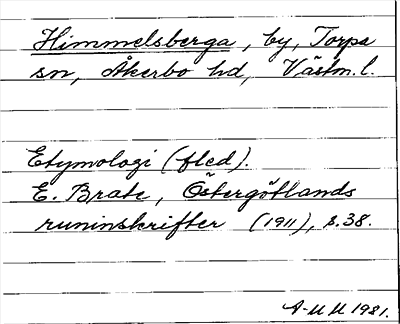 Himmelsberga, by, Torpa
sn, Åkerbo hd, Västm. l.
Etymologi (fled).
E. Brate, Östergötlands
runinskrifter (1911), s. 38.
A-M M 1981.